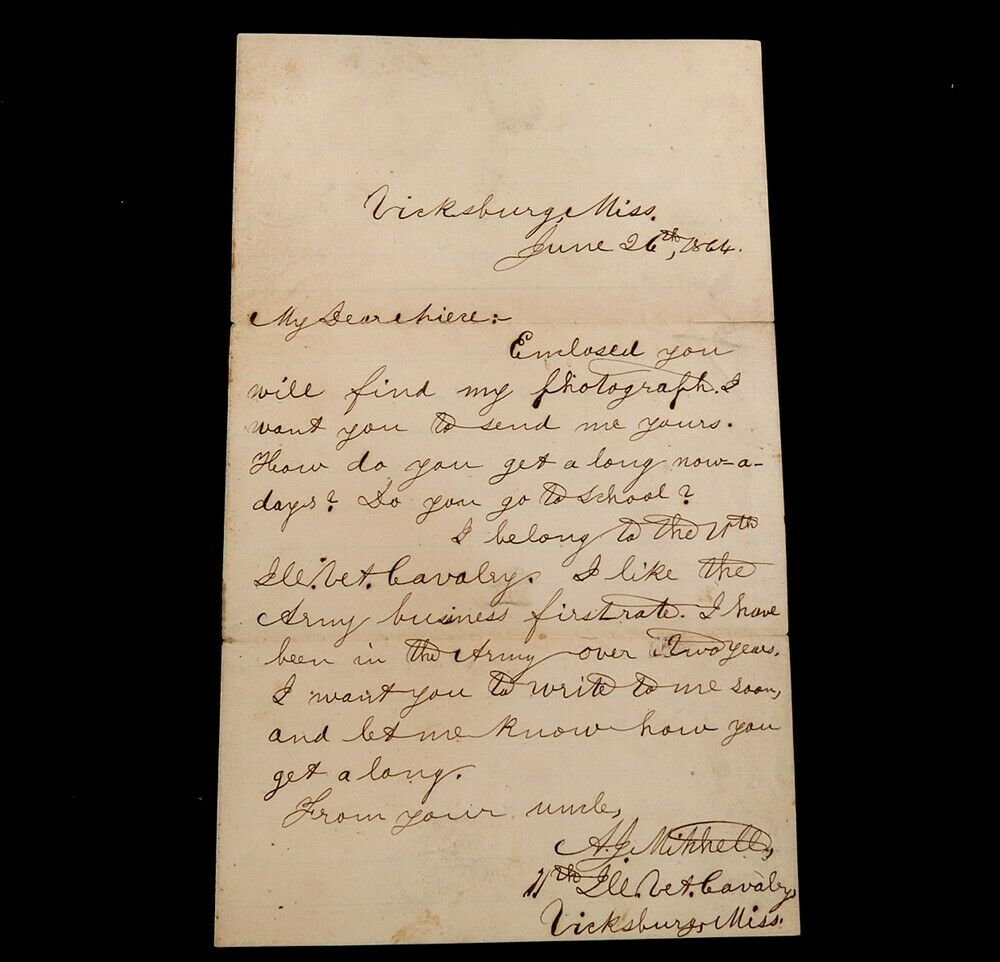 Vicksburg, Miss.
June 26th, 1864.
My Dear Niece:-
Enclosed you
will find my photograph. I
want you to send me yours.
How do you get a long now-a-
days? Do you go to School?
I belong to the 11th
Ill. Vet. Cavalry. I like the
Army business first rate. I have
been in the Army over Two years.
I want you to write to me soon,
and let me know how you
get a long.
From your uncle,
A.J. Mitchell,
11th Ill. Vet. Cavalry,
Vicksburg, Miss.